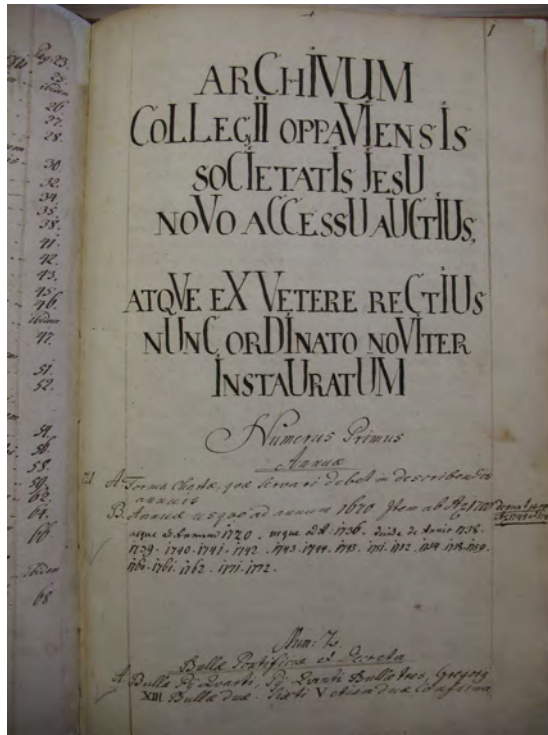 Pag. 23.
25.
ibidem
26
27.
28.
30.
32.
34
35.
38.
41.
42.
43.
45.
46.
ibidem
47.
51.
52.
54.
56.
58.
59.
62.
64.
66
ibidem
68
1
ARCHIVUM
COLLEGII OPPAVIENSIS
SOCIETATIS JESU
NOVO ACCESSU AUCTIUS,
ATQVE EX VETERE RECTIUS
NUNC ORDINATO NOVITER
INSTAURATUM
Numerus Primus
Annuæ
A Forma Chartæ, quæ servari debet in describendis
annuis
B. Annuæ usque ad annum 1670 Item ab Aº 1700
usque ad annum 1720. usque ad A. 1736. deinde de Annis 1738.
1739. 1740. 1741. 1742. 1743. 1744.
1760. 1761. 1762. 1771. 1772.
Num: 2
Bullæ Pontificiæ et Decreta
A. Bulla Pij Quarti, Pij Quinti Bullæ tres, Gregorij
XIII Bullæ duæ. Sixti V etiam duæ